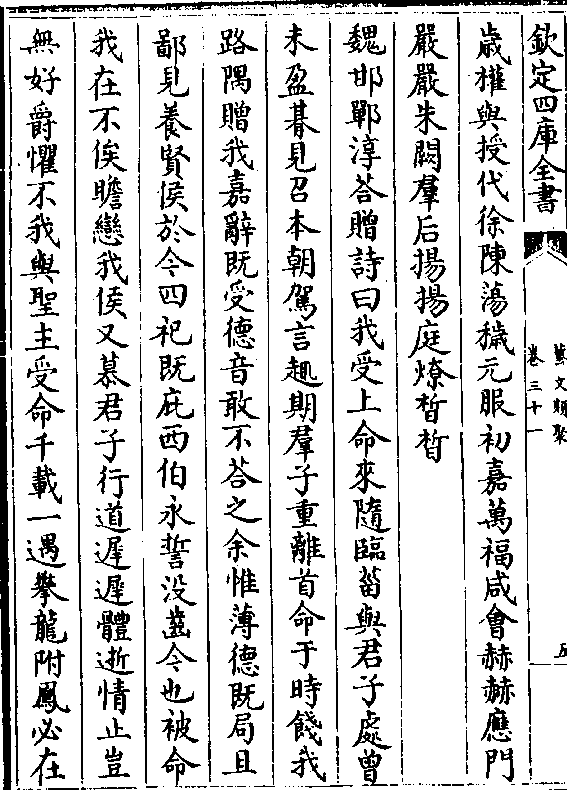 欽定四庫全書
藝文類聚
卷三十一
五
歲權與授代徐陳蕩穢元服初嘉萬福咸會赫赫應門
嚴嚴朱闕羣后揚揚庭燎晳晳
魏邯鄲淳荅贈詩曰我受上命來隨臨菑與君子處曾
未盈朞見召本朝駕言趣期羣子重離首命于時餞我
路隅贈我嘉辭既受德音敢不荅之余惟薄德既局且
鄙見養賢侯於今四祀既庇西伯永誓没齒今也被命
我在不俟瞻戀我侯又慕君子行道遲遲體逝情止豈
無好爵懼不我與聖主受命千載一遇攀龍附鳳必在